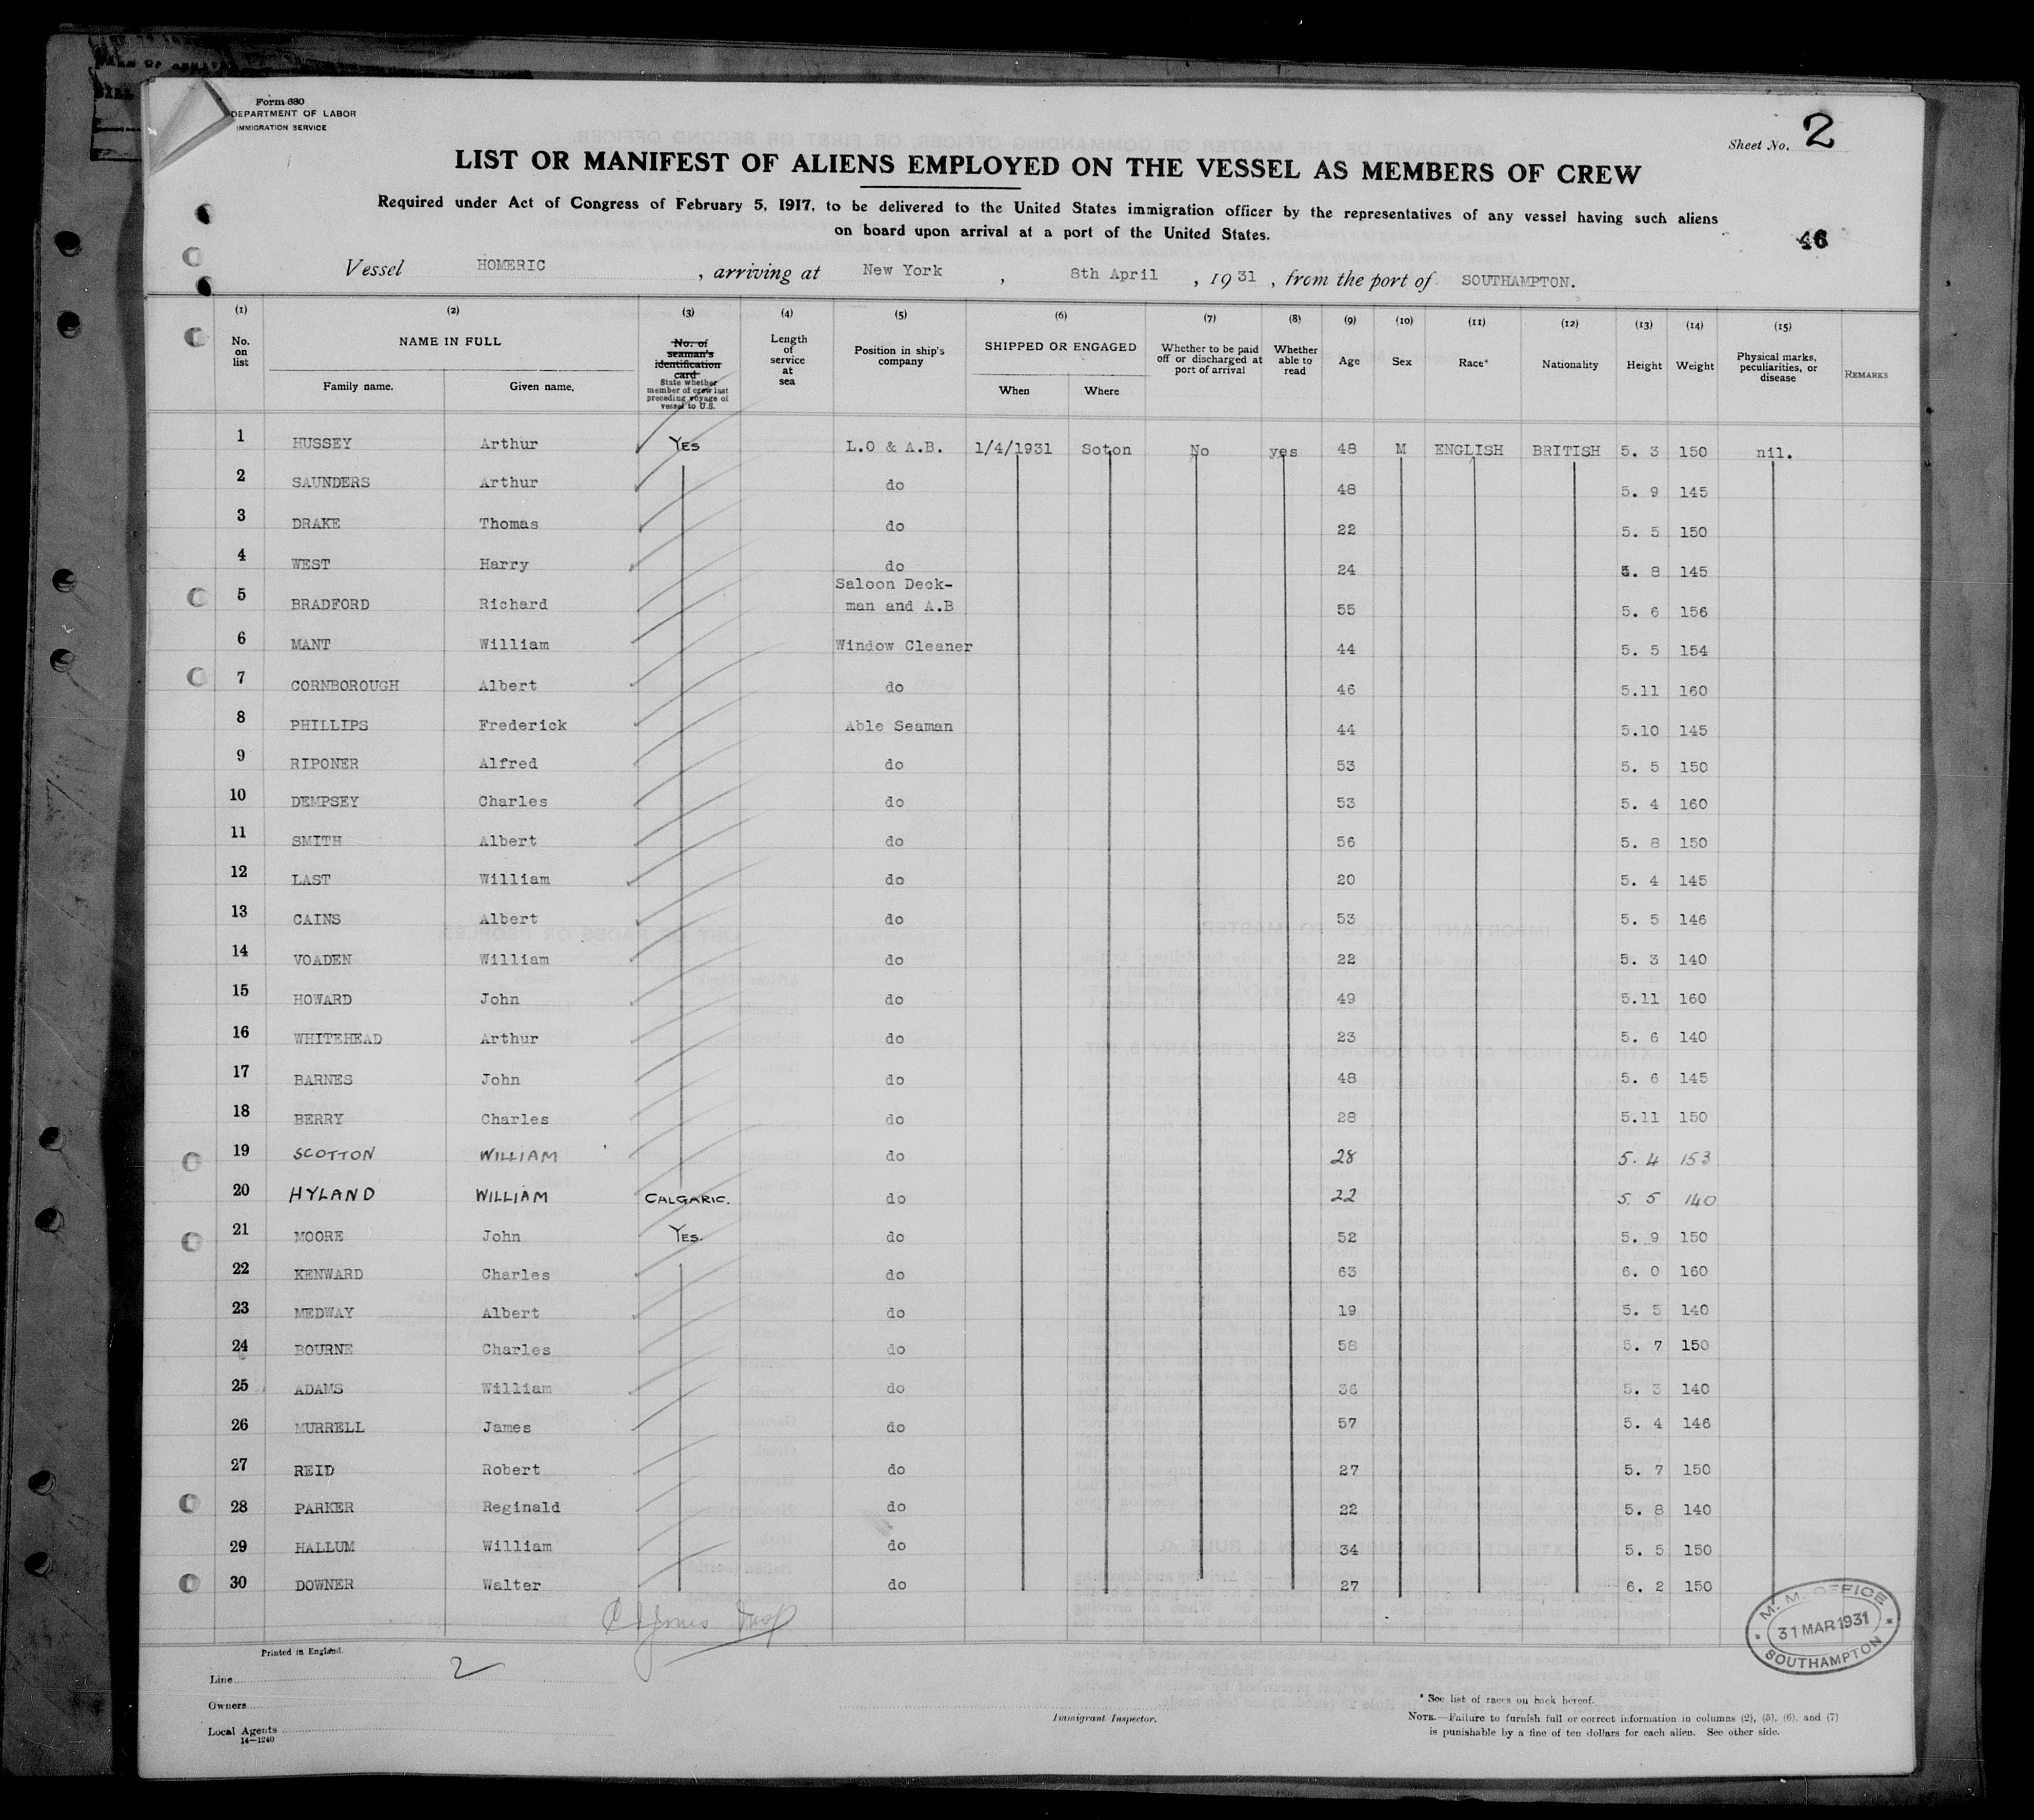 Form 680
DEPARTMENT OF LABOR
IMMIGRATION SERVICE
Sheet No. 2
LIST OR MANIFEST OF ALIENS EMPLOYED ON THE VESSEL AS MEMBERS OF CREW
Required under Act of Congress of February 5, 1917, to be delivered to the United States immigration officer by the representatives of any vessel having such aliens
on board upon arrival at a port of the United States.
46
Vessel HOMERIC, arriving at New York, 8th April, 1931, from the port of SOUTHAMPTON.
(1) (2) (3) (4) (5) (6) (7) (8) (9) (10) (11) (12) (13) (14) (15)
No. on list
NAME IN FULL
Family name. Given name.
No. of seaman's identification card
State whether member of crew last preceding voyage of vessel to U.S.
Length of service at sea
Position in ship's company
SHIPPED OR ENGAGED
When Where
Whether to be paid off or discharged at port of arrival
Whether able to read
Age
Sex
Race*
Nationality
Height
Weight
Physical marks, peculiarities, or disease
REMARKS
1 HUSSEY Arthur YES L.O & A.B. 1/4/1931 Soton No yes 48 M ENGLISH BRITISH 5. 3 150 nil.
2 SAUNDERS Arthur do 48 5. 9 145
3 DRAKE Thomas do 22 5. 5 150
4 WEST Harry do 24 5. 8 145
5 BRADFORD Richard Saloon Deck-
man and A.B 55 5. 6 156
6 MANT William Window Cleaner 44 5. 5 154
7 CORNBOROUGH Albert do 46 5.11 160
8 PHILLIPS Frederick Able Seaman 44 5.10 145
9 RIPONER Alfred do 53 5. 5 150
10 DEMPSEY Charles do 53 5. 4 160
11 SMITH Albert do 56 5. 8 150
12 LAST William do 20 5. 4 145
13 CAINS Albert do 53 5. 5 146
14 VOADEN William do 22 5. 3 140
15 HOWARD John do 49 5.11 160
16 WHITEHEAD Arthur do 23 5. 6 140
17 BARNES John do 48 5. 6 145
18 BERRY Charles do 28 5.11 150
19 SCOTTON WILLIAM do 28 5. 4 153
20 HYLAND WILLIAM CALGARIC. do 22 5. 5 140
21 MOORE John YES. do 52 5. 9 150
22 KENWARD Charles do 63 6. 0 160
23 MEDWAY Albert do 19 5. 5 140
24 BOURNE Charles do 58 5. 7 150
25 ADAMS William do 36 5. 3 140
26 MURRELL James do 57 5. 4 146
27 REID Robert do 27 5. 7 150
28 PARKER Reginald do 22 5. 8 140
29 HALLUM William do 34 5. 5 150
30 DOWNER Walter do 27 6. 2 150
M. M. OFFICE
31 MAR 1931
SOUTHAMPTON
Printed in England.
2
Line
Owners
Local Agents
14—1240
Immigrant Inspector.
* See list of races on back hereof.
NOTE.—Failure to furnish full or correct information in columns (2), (5), (6), and (7)
is punishable by a fine of ten dollars for each alien. See other side.